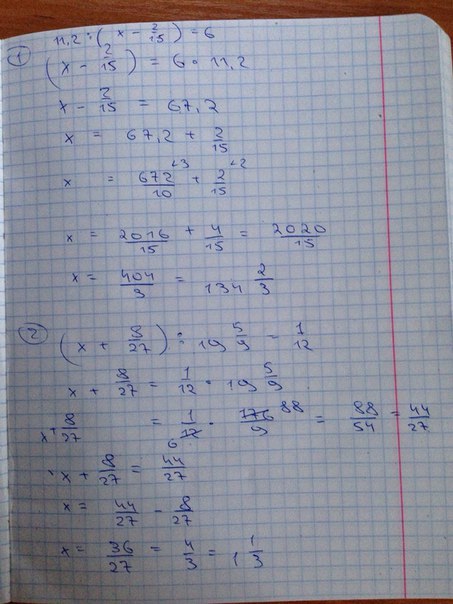 ① 11,2 : (x - 2/15) = 6
(x - 2/15) = 6 · 11,2
x - 2/15 = 67,2
x = 67,2 + 2/15
x = 672/10 ·3 + 2/15 ·2
x = 2016/15 + 4/15 = 2020/15
x = 404/3 = 134 2/3
② (x + 8/27) : 19 5/9 = 1/12
x + 8/27 = 1/12 · 19 5/9
x + 8/27 = 1/12 6 · 176/9 88 = 88/54 = 44/27
x + 8/27 = 44/27
x = 44/27 - 8/27
x = 36/27 = 4/3 = 1 1/3